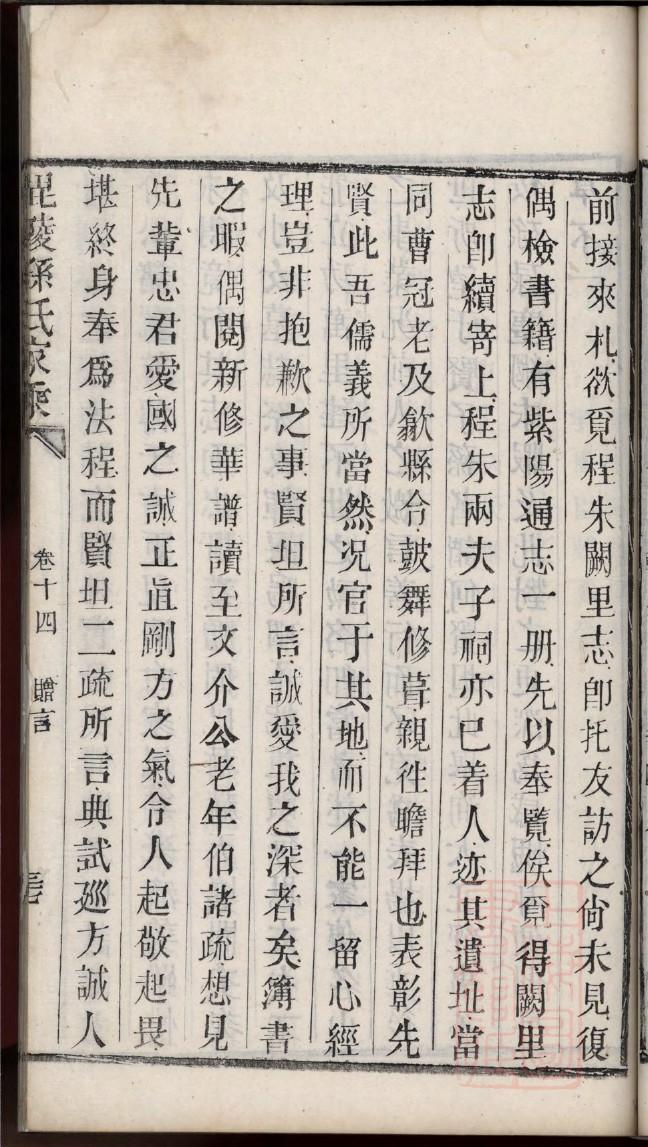 前接來札欲覓程朱闕里志卽托友訪之尙未見復
偶檢書籍有紫陽通志一册先以奉覽俟覓得闕里
志卽續寄上程朱兩夫子祠亦已着人迹其遺址當
同曹冠老及歙縣令鼓舞修葺親徃瞻拜也表彰先
賢此吾儒義所當然况官于其地而不能一留心經
理豈非抱歉之事賢坦所言誠愛我之深者矣簿書
之暇偶閱新修華譜讀至文介公老年伯諸疏想見
先輩忠君愛國之誠正直剛方之氣令人起敬起畏
堪終身奉爲法程而賢坦二疏所言典試廵方誠人
毘陵孫氏家乘
卷十四 贈言